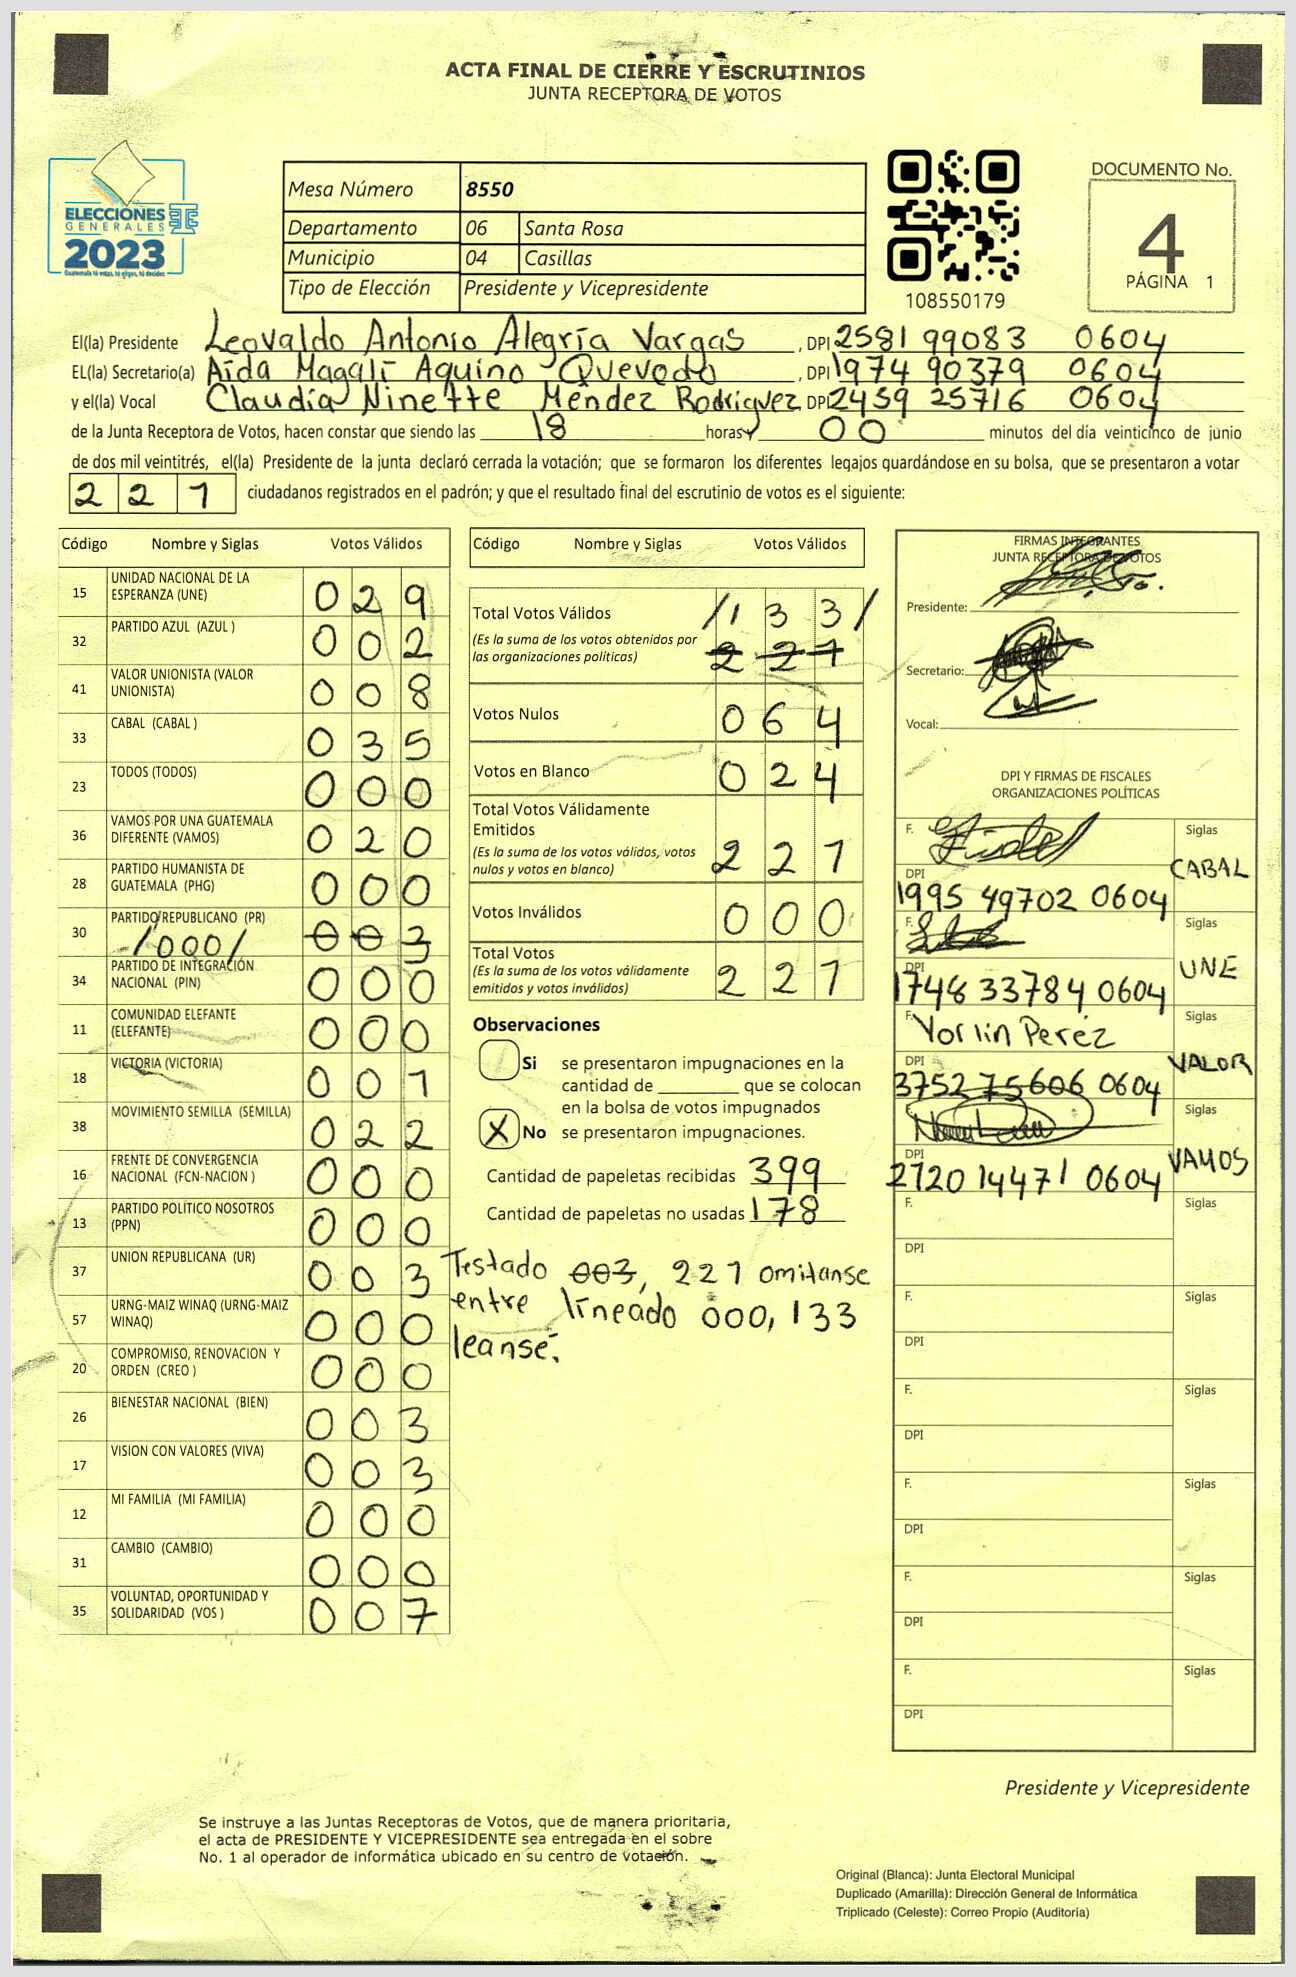 ACTA FINAL DE CIERRE Y ESCRUTINIOS
JUNTA RECEPTORA DE VOTOS
ELECCIONES
GENERALES
2023
Mesa Número 8550
Departamento 06 Santa Rosa
Municipio 04 Casillas
Tipo de Elección Presidente y Vicepresidente
108550179
DOCUMENTO No.
4
PÁGINA 1
El(la) Presidente Leovaldo Antonio Alegría Vargas, DPI 2581 99083 0604
EL(la) Secretario(a) Aída Magalí Aquino Quevedo, DPI 1974 90379 0604
y el(la) Vocal Claudia Ninette Méndez Rodríguez DPI 2459 25716 0604
de la Junta Receptora de Votos, hacen constar que siendo las 18 horas y 00 minutos del día veinticinco de junio
de dos mil veintitrés, el(la) Presidente de la junta declaró cerrada la votación; que se formaron los diferentes legajos guardándose en su bolsa, que se presentaron a votar
221 ciudadanos registrados en el padrón; y que el resultado final del escrutinio de votos es el siguiente:
Código Nombre y Siglas Votos Válidos
15 UNIDAD NACIONAL DE LA ESPERANZA (UNE) 029
32 PARTIDO AZUL (AZUL ) 002
41 VALOR UNIONISTA (VALOR UNIONISTA) 008
33 CABAL (CABAL ) 035
23 TODOS (TODOS) 000
36 VAMOS POR UNA GUATEMALA DIFERENTE (VAMOS) 020
28 PARTIDO HUMANISTA DE GUATEMALA (PHG) 000
30 PARTIDO REPUBLICANO (PR) /000/ 003
34 PARTIDO DE INTEGRACIÓN NACIONAL (PIN) 000
11 COMUNIDAD ELEFANTE (ELEFANTE) 000
18 VICTORIA (VICTORIA) 001
38 MOVIMIENTO SEMILLA (SEMILLA) 022
16 FRENTE DE CONVERGENCIA NACIONAL (FCN-NACION ) 000
13 PARTIDO POLÍTICO NOSOTROS (PPN) 000
37 UNION REPUBLICANA (UR) 003
57 URNG-MAIZ WINAQ (URNG-MAIZ WINAQ) 000
20 COMPROMISO, RENOVACION Y ORDEN (CREO ) 000
26 BIENESTAR NACIONAL (BIEN) 003
17 VISION CON VALORES (VIVA) 003
12 MI FAMILIA (MI FAMILIA) 000
31 CAMBIO (CAMBIO) 000
35 VOLUNTAD, OPORTUNIDAD Y SOLIDARIDAD (VOS ) 007
Código Nombre y Siglas Votos Válidos
Total Votos Válidos /133/
(Es la suma de los votos obtenidos por las organizaciones políticas) 221
Votos Nulos 064
Votos en Blanco 024
Total Votos Válidamente Emitidos
(Es la suma de los votos válidos, votos nulos y votos en blanco) 221
Votos Inválidos 000
Total Votos
(Es la suma de los votos válidamente emitidos y votos inválidos) 221
Observaciones
Si se presentaron impugnaciones en la
cantidad de ________ que se colocan
en la bolsa de votos impugnados
X No se presentaron impugnaciones.
Cantidad de papeletas recibidas 399
Cantidad de papeletas no usadas 178
Testado 003, 221 omitanse
entre líneado 000, 133
leanse.
FIRMAS INTEGRANTES
JUNTA RECEPTORA DE VOTOS
Presidente:
Secretario:
Vocal:
DPI Y FIRMAS DE FISCALES
ORGANIZACIONES POLÍTICAS
F. Siglas CABAL
DPI 1995 49702 0604
F. Siglas UNE
DPI 1748 33784 0604
F. Yorlin Peréz Siglas VALOR
DPI 3752 75606 0604
F. Siglas VAMOS
DPI 2720 14471 0604
F. Siglas
DPI
F. Siglas
DPI
F. Siglas
DPI
F. Siglas
DPI
F. Siglas
DPI
F. Siglas
DPI
Presidente y Vicepresidente
Se instruye a las Juntas Receptoras de Votos, que de manera prioritaria,
el acta de PRESIDENTE Y VICEPRESIDENTE sea entregada en el sobre
No. 1 al operador de informática ubicado en su centro de votación.
Original (Blanca): Junta Electoral Municipal
Duplicado (Amarilla): Dirección General de Informática
Triplicado (Celeste): Correo Propio (Auditoría)